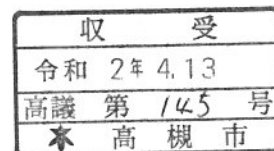 収受
令和 2年 4.13
高議 第 145 号
高槻市